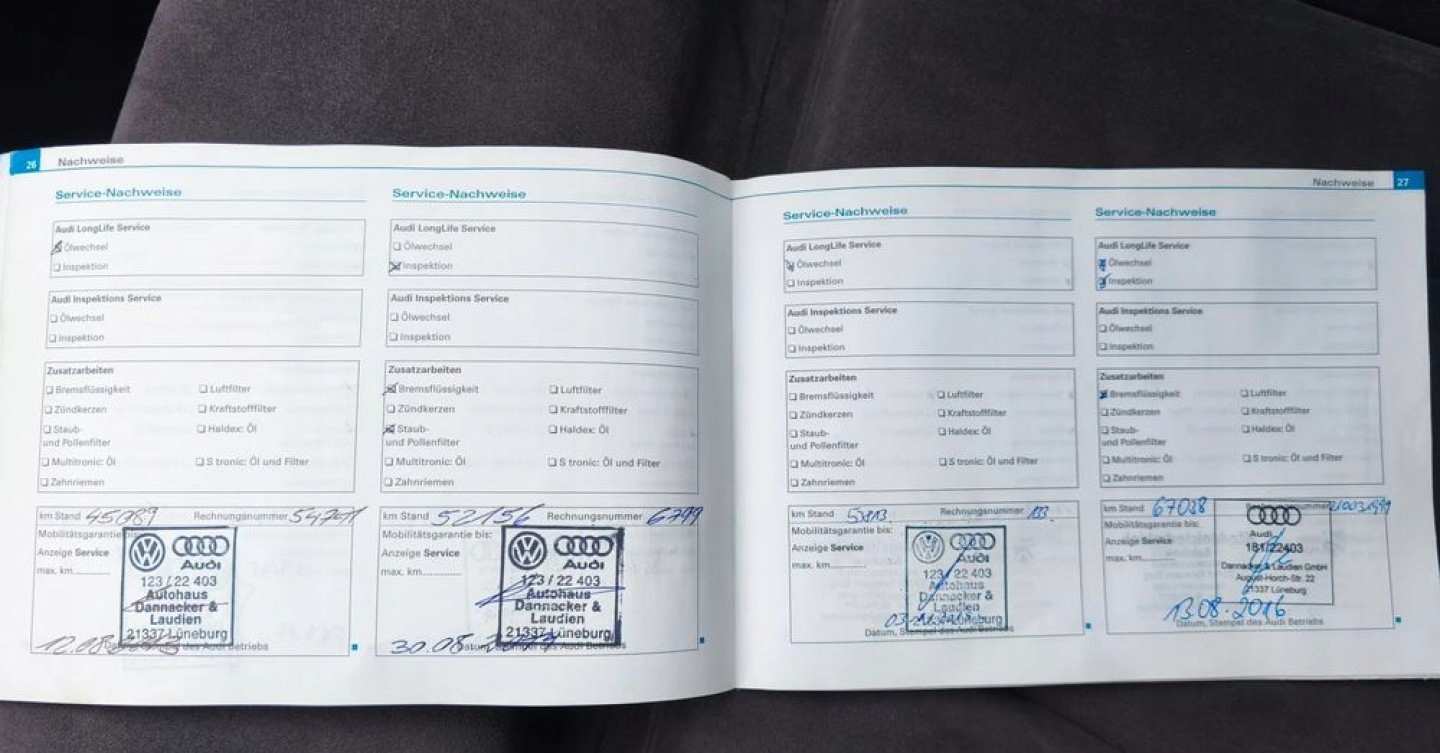 26 Nachweise
Service-Nachweise
Audi LongLife Service
Ölwechsel
Inspektion
Audi Inspektions Service
Ölwechsel
Inspektion
Zusatzarbeiten
Bremsflüssigkeit Luftfilter
Zündkerzen Kraftstofffilter
Staub- Haldex: Öl
und Pollenfilter
Multitronic: Öl S tronic: Öl und Filter
Zahnriemen
km Stand 45089 Rechnungsnummer
Mobilitätsgarantie bis:
Anzeige Service
max. km
Audi
123/22 403
Autohaus
Dannacker &
Laudien
21337 Lüneburg
12.08
Datum, Stempel des Audi Betriebs
Service-Nachweise
Audi LongLife Service
Ölwechsel
Inspektion
Audi Inspektions Service
Ölwechsel
Inspektion
Zusatzarbeiten
Bremsflüssigkeit Luftfilter
Zündkerzen Kraftstofffilter
Staub- Haldex: Öl
und Pollenfilter
Multitronic: Öl S tronic: Öl und Filter
Zahnriemen
km Stand 52156 Rechnungsnummer 6799
Mobilitätsgarantie bis:
Anzeige Service
max. km
Audi
123/22 403
Autohaus
Dannacker &
Laudien
21337 Lüneburg
30.08
Datum, Stempel des Audi Betriebs
Nachweise 27
Service-Nachweise
Audi LongLife Service
Ölwechsel
Inspektion
Audi Inspektions Service
Ölwechsel
Inspektion
Zusatzarbeiten
Bremsflüssigkeit Luftfilter
Zündkerzen Kraftstofffilter
Staub- Haldex: Öl
und Pollenfilter
Multitronic: Öl S tronic: Öl und Filter
Zahnriemen
km Stand Rechnungsnummer
Mobilitätsgarantie bis:
Anzeige Service
max. km
Audi
123/22 403
Autohaus
Dannacker &
Laudien
Lüneburg
Datum, Stempel des Audi Betriebs
Service-Nachweise
Audi LongLife Service
Ölwechsel
Inspektion
Audi Inspektions Service
Ölwechsel
Inspektion
Zusatzarbeiten
Bremsflüssigkeit Luftfilter
Zündkerzen Kraftstofffilter
Staub- Haldex: Öl
und Pollenfilter
Multitronic: Öl S tronic: Öl und Filter
Zahnriemen
km Stand 67038
Mobilitätsgarantie bis:
Anzeige Service
max. km
Audi
181/22403
Dannacker & Laudien GmbH
August-Horch-Str. 22
21337 Lüneburg
13.08.2016
Datum, Stempel des Audi Betriebs